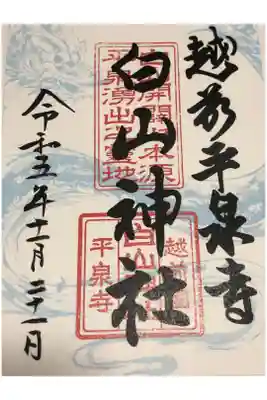 越前平泉寺
白山神社
令和五年十一月二十一日
平泉湧出之靈地
越前
平泉寺